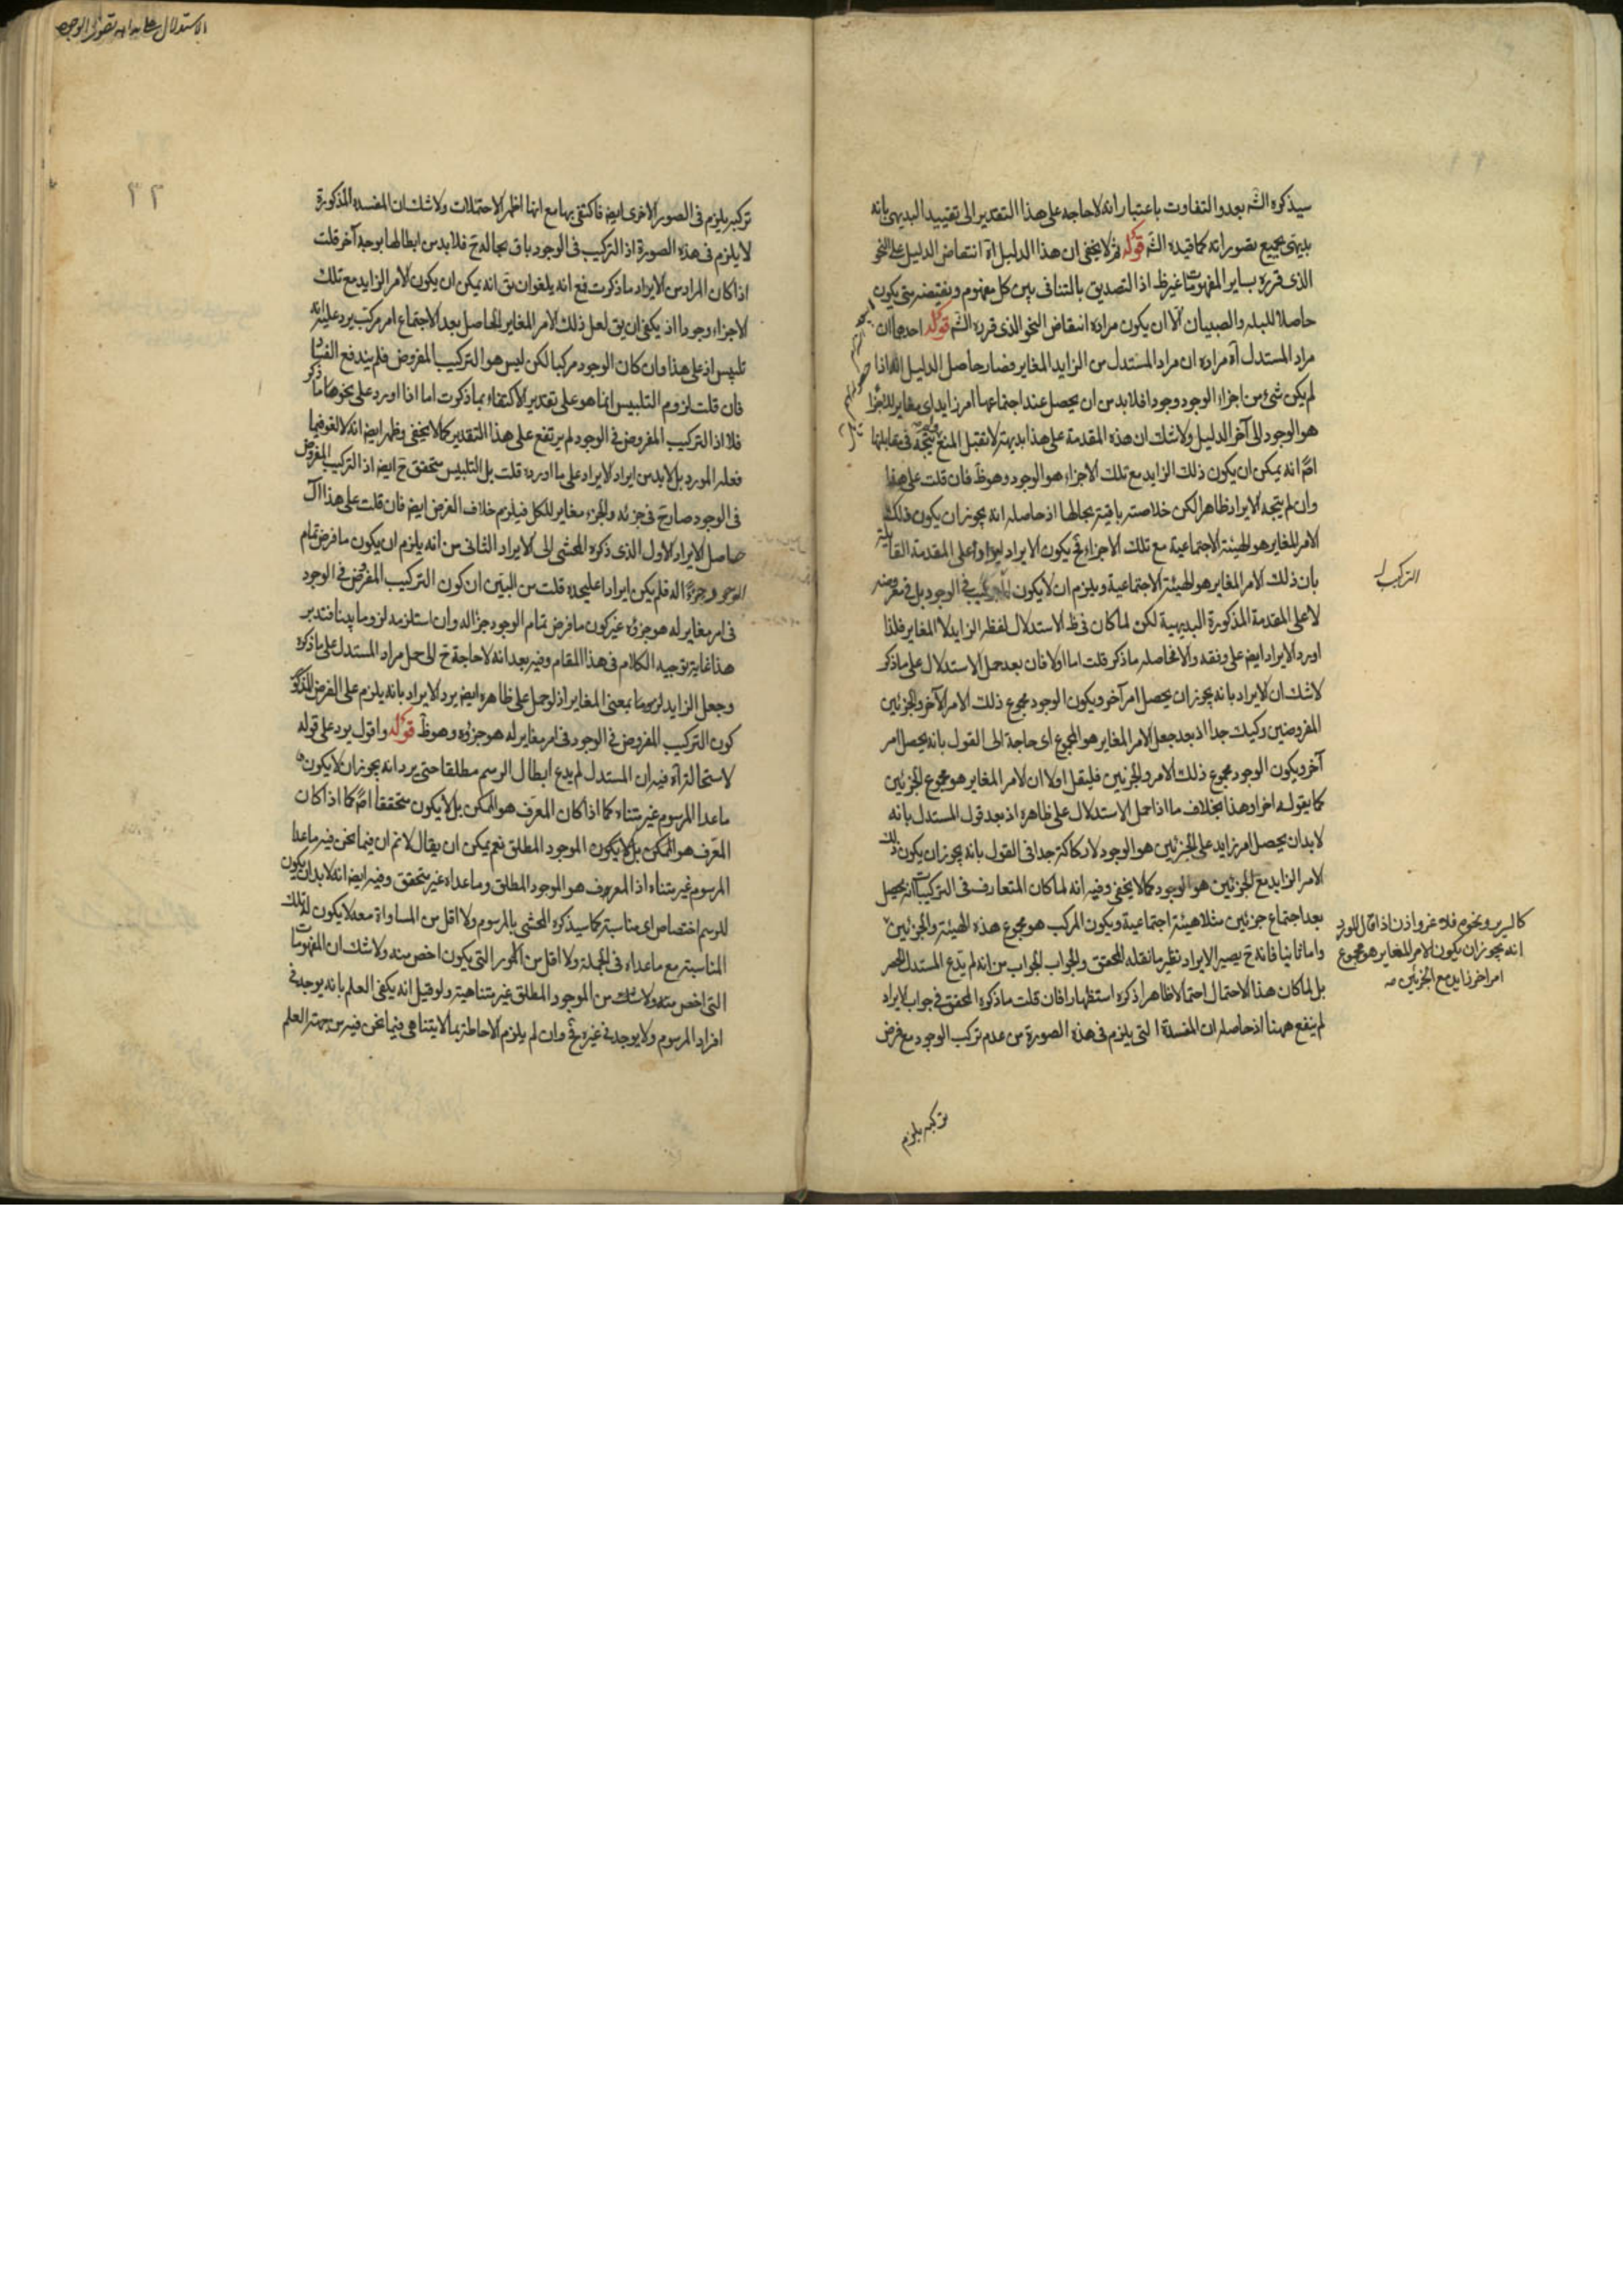 سيذكره الشه بعد والتفاوت باعتبار انه لا حاجه على هذا التقدير الى تقييد البديهى بانه
بديهى بجميع تصوراته كما قيده الشه قوله ثم لا يخفى ان هذا الدليل آه انتقاض الدليل على النحو
الذى قرره بساير المفهومات غير ظ اذ التصديق بالتنافى بين كل مفهوم ونقيضه حتى يكون
حاصلا للبله والصبيان الا ان يكون مراده انتقاض النحو الذى قرره الشه قوله احدها ان
مراد المستدل آه مراده ان مراد المستدل من الزايد المغاير فصار حاصل الدليل انه اذا
لم يكن شئ من اجزاء الوجود وجودا فلا بد من ان يحصل عند اجتماعها امر زايد اى مغاير للاجزاء
هو الوجود الى آخر الدليل ولا شك ان هذه المقدمة على هذا بديهية لا تقبل المنع فى مقابلتها
امّ انه يمكن ان يكون ذلك الزايد مع تلك الاجزاء هو الوجود وهو ظ فان قلت على هذا
وان لم يتجه الايراد ظاهرا لكن خلاصته باقية بحالها اذ حاصله انه يجوز ان يكون ذلك
الامر المغاير هو الهيئة الاجتماعية مع تلك الاجزاء فح يكون الايراد ايرادا على المقدمة القايلة
بان ذلك الامر المغاير هو الهيئة الاجتماعية ويلزم ان لا يكون التركيب فى الوجود بل فى معروضه
لا على المقدمة المذكورة البديهية لكن لما كان فى ظ الاستدلال لفظ الزايد لا المغاير فلذا
اورد الايراد ايضا على وفقه والا فحاصله ما ذكر قلت اما اولا فان بعد حمل الاستدلال على ما ذكر
لا شك ان الايراد بانه يجوز ان يحصل امر آخر ويكون الوجود مجموع ذلك الامر الآخر والجزئين
المفروضين ركيك جدا اذ بعد جعل الامر المغاير هو المجموع اى حاجة الى القول بانه يحصل امر
آخر ويكون الوجود مجموع ذلك الامر والجزئين فليقل اولا ان الامر المغاير هو مجموع الجزئين
كما يقوله اخرا وهذا بخلاف ما اذا حمل الاستدلال على ظاهره اذ بعد قول المستدل بانه
لا بد ان يحصل امر زايد على الجزئين هو الوجود لا ركاكة جدا فى القول بانه يجوز ان يكون ذلك
الامر الزايد مع الجزئين هو الوجود كما لا يخفى وفيه انه لما كان المتعارف فى التركيبات انه يحصل
بعد اجتماع جزئين مثلا هيئة اجتماعية ويكون المركب هو مجموع هذه الهيئة والجزئين
واما ثانيا فانه ح يصير الايراد نظير ما نقله المحقق والجواب الجواب من انه لم يدع المستدل الحصر
بل لما كان هذا الاحتمال احتمالا ظاهرا ذكره استظهارا فان قلت ما ذكره المحقق فى جواب الايراد
لم ينفع ههنا اذ حاصله ان المفسدة التى يلزم فى هذه الصورة من عدم تركب الوجود مع فرض
تركبه يلزم
التركيب
كالسرير ونحوه فلا غرو اذن اذا قال المورد
انه يجوز ان يكون الامر المغاير هو مجموع
امر اخر زايد مع الجزئين صه
الاستدلال على بداهة تصور الوجود
٢٢
تركبه يلزم فى الصور الاخرى ايضا فاكتفى بها مع انها اظهر الاحتمالات ولا شك ان المفسده المذكورة
لا يلزم فى هذه الصورة اذ التركيب فى الوجود باق بحاله ح فلا بد من ابطالها بوجه آخر قلت
اذا كان المراد من الايراد ما ذكرت فمع انه يلغو ان يق انه يمكن ان يكون الامر الزايد مع تلك
الاجزاء وجودا اذ يكفى ان يق لعل ذلك الامر المغاير الحاصل بعد الاجتماع امر مركب يرد عليه انه
تلبيس اذ على هذا وان كان الوجود مركبا لكن ليس هو التركيب المفروض فلم يندفع الفساد
فان قلت لزوم التلبيس انما هو على تقدير الاكتفاء بما ذكرت اما اذا اورد على نحو ما ذكر
فلا اذ التركيب المفروض فى الوجود لم يرتفع على هذا التقدير كما لا يخفى وظهر ايضا انه لا لغو فيما
فعله المورد بل لا بد من ايراد الايراد على ما اورده قلت بل التلبيس متحقق ح ايضا اذ التركيب المفروض
فى الوجود صار ح فى جزئه والجزء مغاير للكل فيلزم خلاف الفرض ايضا فان قلت على هذا آل
حاصل الايراد الاول الذى ذكره المحشى الى الايراد الثانى من انه يلزم ان يكون ما فرض تمام
الوجود جزءًا له فلم يكن ايرادا عليحده قلت من البيّن ان كون التركيب المفروض فى الوجود
فى امر مغاير له هو جزؤه غير كون ما فرض تمام الوجود جزأ له وان استلزمه لزوما بينا فتدبر
هذا غاية توجيه الكلام فى هذا المقام وفيه بعد انه لا حاجة ح الى حمل مراد المستدل على ما ذكره
وجعل الزايد بمعنى المغاير اذ لو حمل على ظاهره ايضا يرد الايراد بانه يلزم على الفرض المذكور
كون التركيب المفروض فى الوجود فى امر مغاير له هو جزؤه وهو ظ قوله واقول يرد على قوله
لاستحالة آه فيه ان المستدل لم يدع ابطال الرسم مطلقا حتى يرد انه يجوز ان لا يكون
ما عدا المرسوم غير متناه كما اذا كان المعرف هو الممكن بل لا يكون متحققا امّ كما اذا كان
المعرف هو الممكن بل لا يكون الموجود المطلق نعم يمكن ان يقال لا نم ان فيما نحن فيه ما عدا
المرسوم غير متناه اذ المعرف هو الموجود المطلق وما عداه غير متحقق وفيه ايضا انه لا بد ان يكون
للرسم اختصاص اى مناسبة كما سيذكره المحشى بالمرسوم ولا اقل من المساواة معه لا يكون لتلك
المناسبة مع ما عداه فى الجملة ولا اقل من الامور التى يكون اخص منه ولا شك ان المفهومات
التى اخص منه ولا شك من الموجود المطلق غير متناهية ولو قيل انه يكفى العلم بانه يوجد فى
افراد المرسوم ولا يوجد فى غيره فح وان لم يلزم الاحاطة بما لا يتناهى فيما نحن فيه من جهة العلم